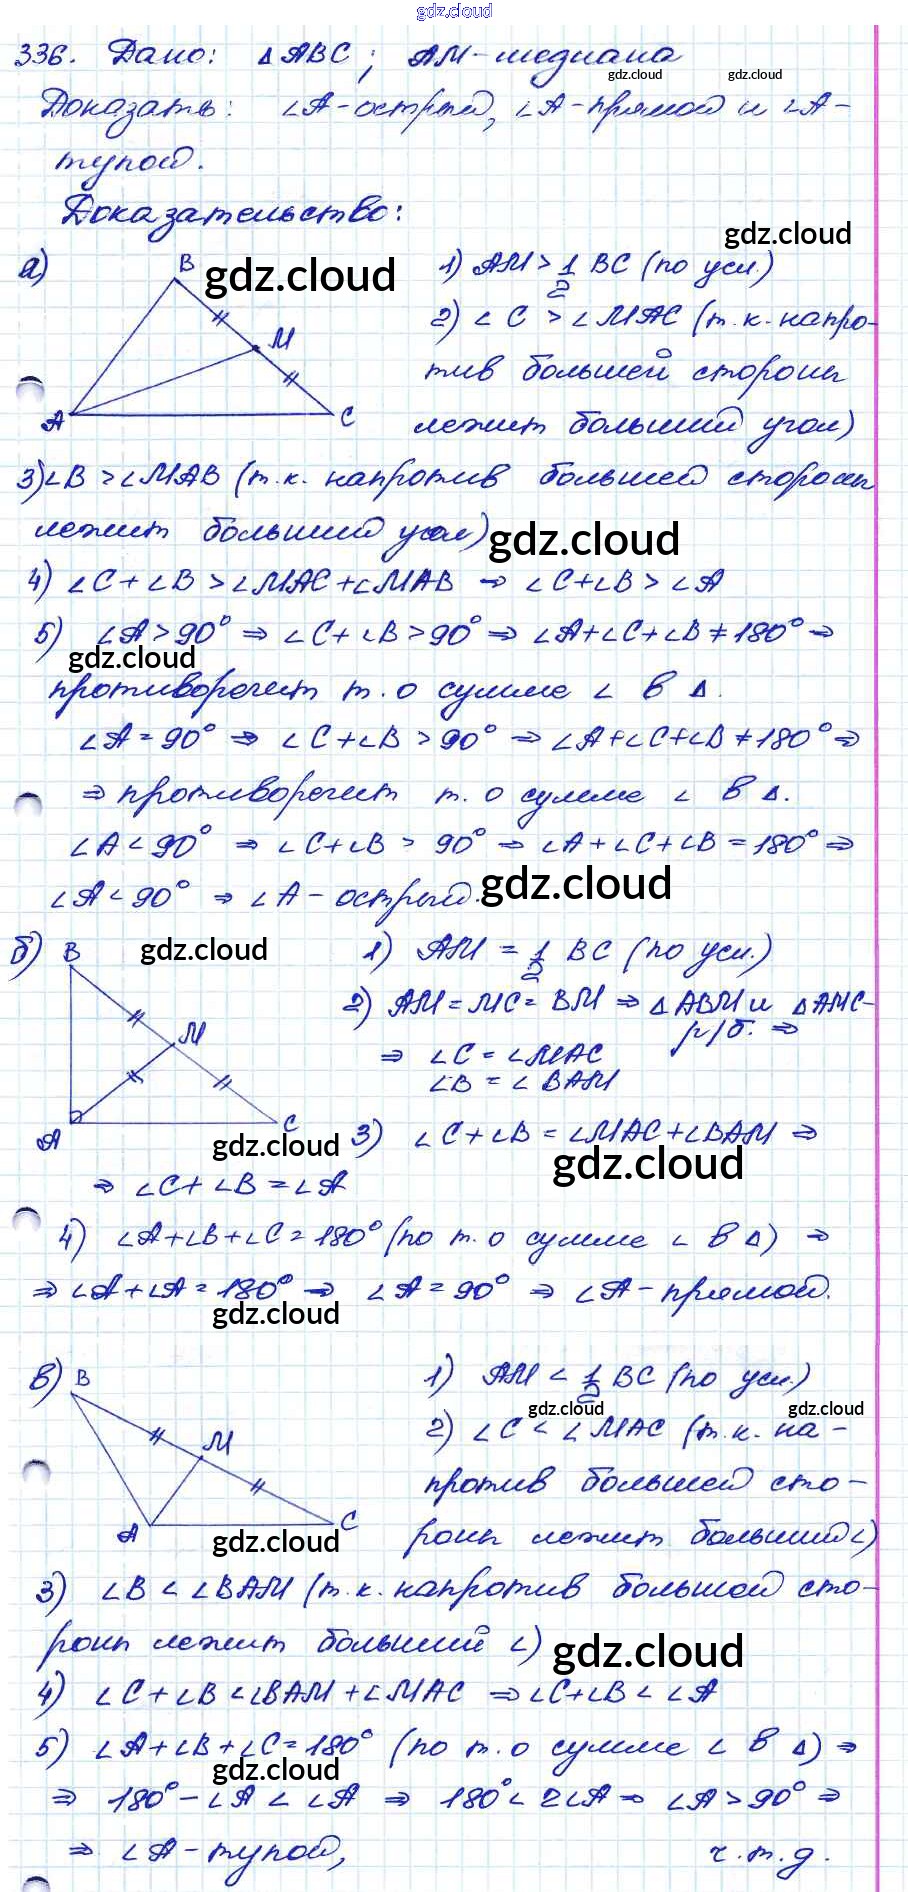 gdz.cloud
336. Дано: ΔABC; AM-медиана
gdz.cloud gdz.cloud
Доказать: ∠A-острый, ∠A-прямой и ∠A-
тупой.
Доказательство:
gdz.cloud
а) B gdz.cloud M A C
1) AM > 1/2 BC (по усл.)
2) ∠C > ∠MAC (т.к. напро-
тив большей стороны
лежит больший угол)
3) ∠B > ∠MAB (т.к. напротив большей стороны
лежит больший угол) gdz.cloud
4) ∠C+∠B > ∠MAC+∠MAB ⇒ ∠C+∠B > ∠A
5) ∠A > 90° ⇒ ∠C+∠B > 90° ⇒ ∠A+∠C+∠B ≠ 180° ⇒
gdz.cloud
противоречит т. о сумме ∠ в Δ.
∠A = 90° ⇒ ∠C+∠B > 90° ⇒ ∠A+∠C+∠B ≠ 180° ⇒
⇒ противоречит т. о сумме ∠ в Δ.
∠A < 90° ⇒ ∠C+∠B > 90° ⇒ ∠A+∠C+∠B = 180° ⇒
∠A < 90° ⇒ ∠A - острый. gdz.cloud
б) B gdz.cloud M A C
1) AM = 1/2 BC (по усл.)
2) AM = MC = BM ⇒ ΔABM и ΔAMC-
р/б. ⇒
⇒ ∠C = ∠MAC
∠B = ∠BAM
gdz.cloud
3) ∠C+∠B = ∠MAC+∠BAM ⇒
gdz.cloud
⇒ ∠C+∠B = ∠A
4) ∠A+∠B+∠C = 180° (по т. о сумме ∠ в Δ) ⇒
⇒ ∠A+∠A = 180° ⇒ ∠A = 90° ⇒ ∠A - прямой.
gdz.cloud
в) B M A C
1) AM < 1/2 BC (по усл.)
gdz.cloud gdz.cloud
2) ∠C < ∠MAC (т.к. на-
против большей сто-
роны лежит больший ∠)
gdz.cloud
3) ∠B < ∠BAM (т.к. напротив большой сто-
роны лежит больший ∠) gdz.cloud
4) ∠C+∠B < ∠BAM+∠MAC ⇒ ∠C+∠B < ∠A
5) ∠A+∠B+∠C = 180° (по т. о сумме ∠ в Δ) ⇒
gdz.cloud
⇒ 180° - ∠A < ∠A ⇒ 180° < 2∠A ⇒ ∠A > 90° ⇒
⇒ ∠A - тупой, ч.т.д.